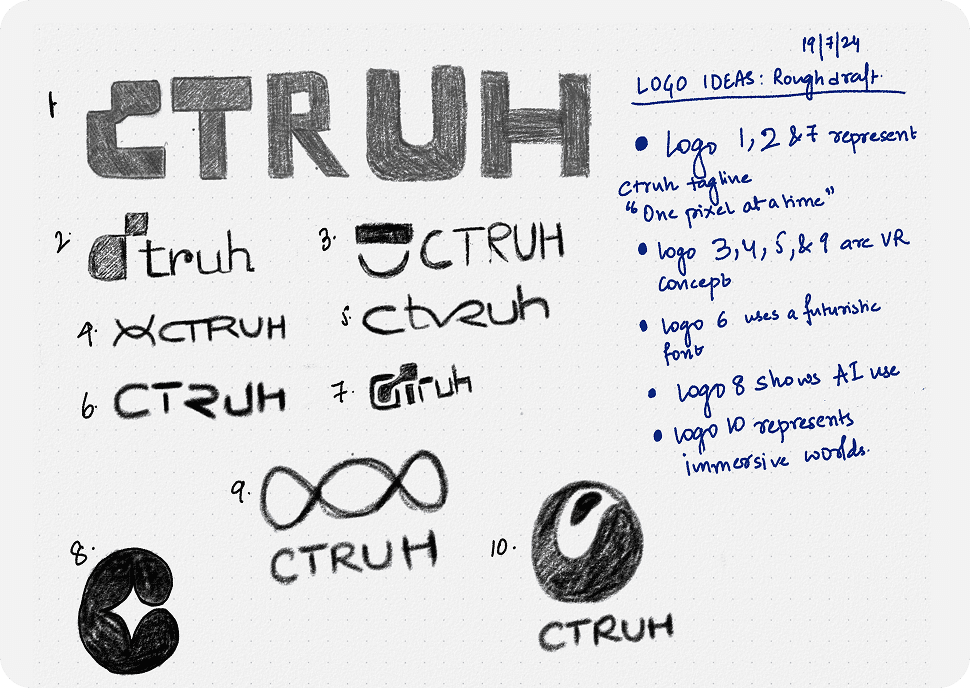 19/7/24
LOGO IDEAS: Rough draft.
• Logo 1, 2 & 7 represent
Ctruh tagline
"One pixel at a time"
• logo 3, 4, 5, & 9 are VR
concept
• logo 6 uses a futuristic
font
• logo 8 shows AI use
• logo 10 represents
immersive worlds.
1 CTRUH
2. ctruh
3. CTRUH
4. CTRUH
5. Ctvruh
6. CTRUH
7. Ctruh
8. C
9. CTRUH
10. CTRUH